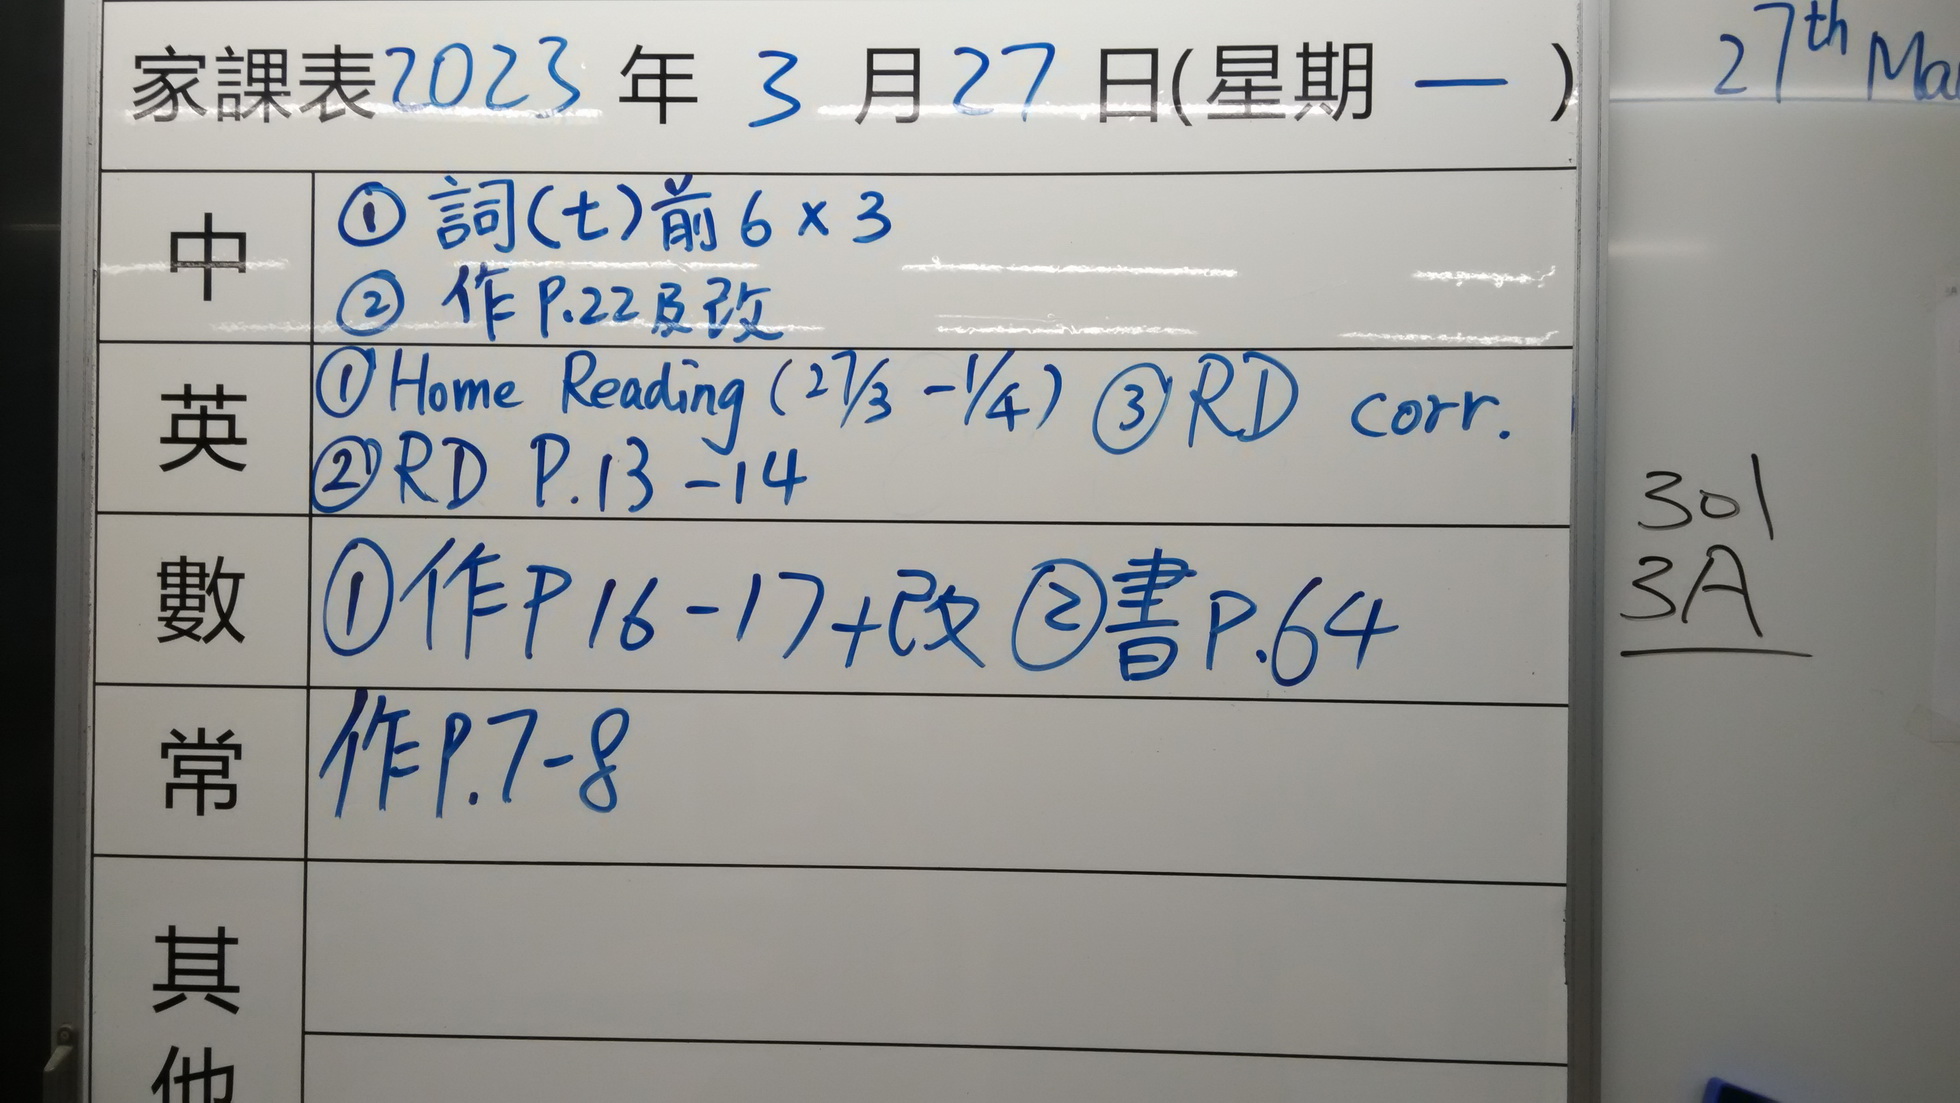 家課表2023年3月27日(星期一)
27th Ma
中
① 詞(七)前6×3
② 作P.22及改
英
①Home Reading (27/3 -1/4) ③RD corr.
②RD P.13-14
301
3A
數
①作P16-17+改②書P.64
常
作P.7-8
其他